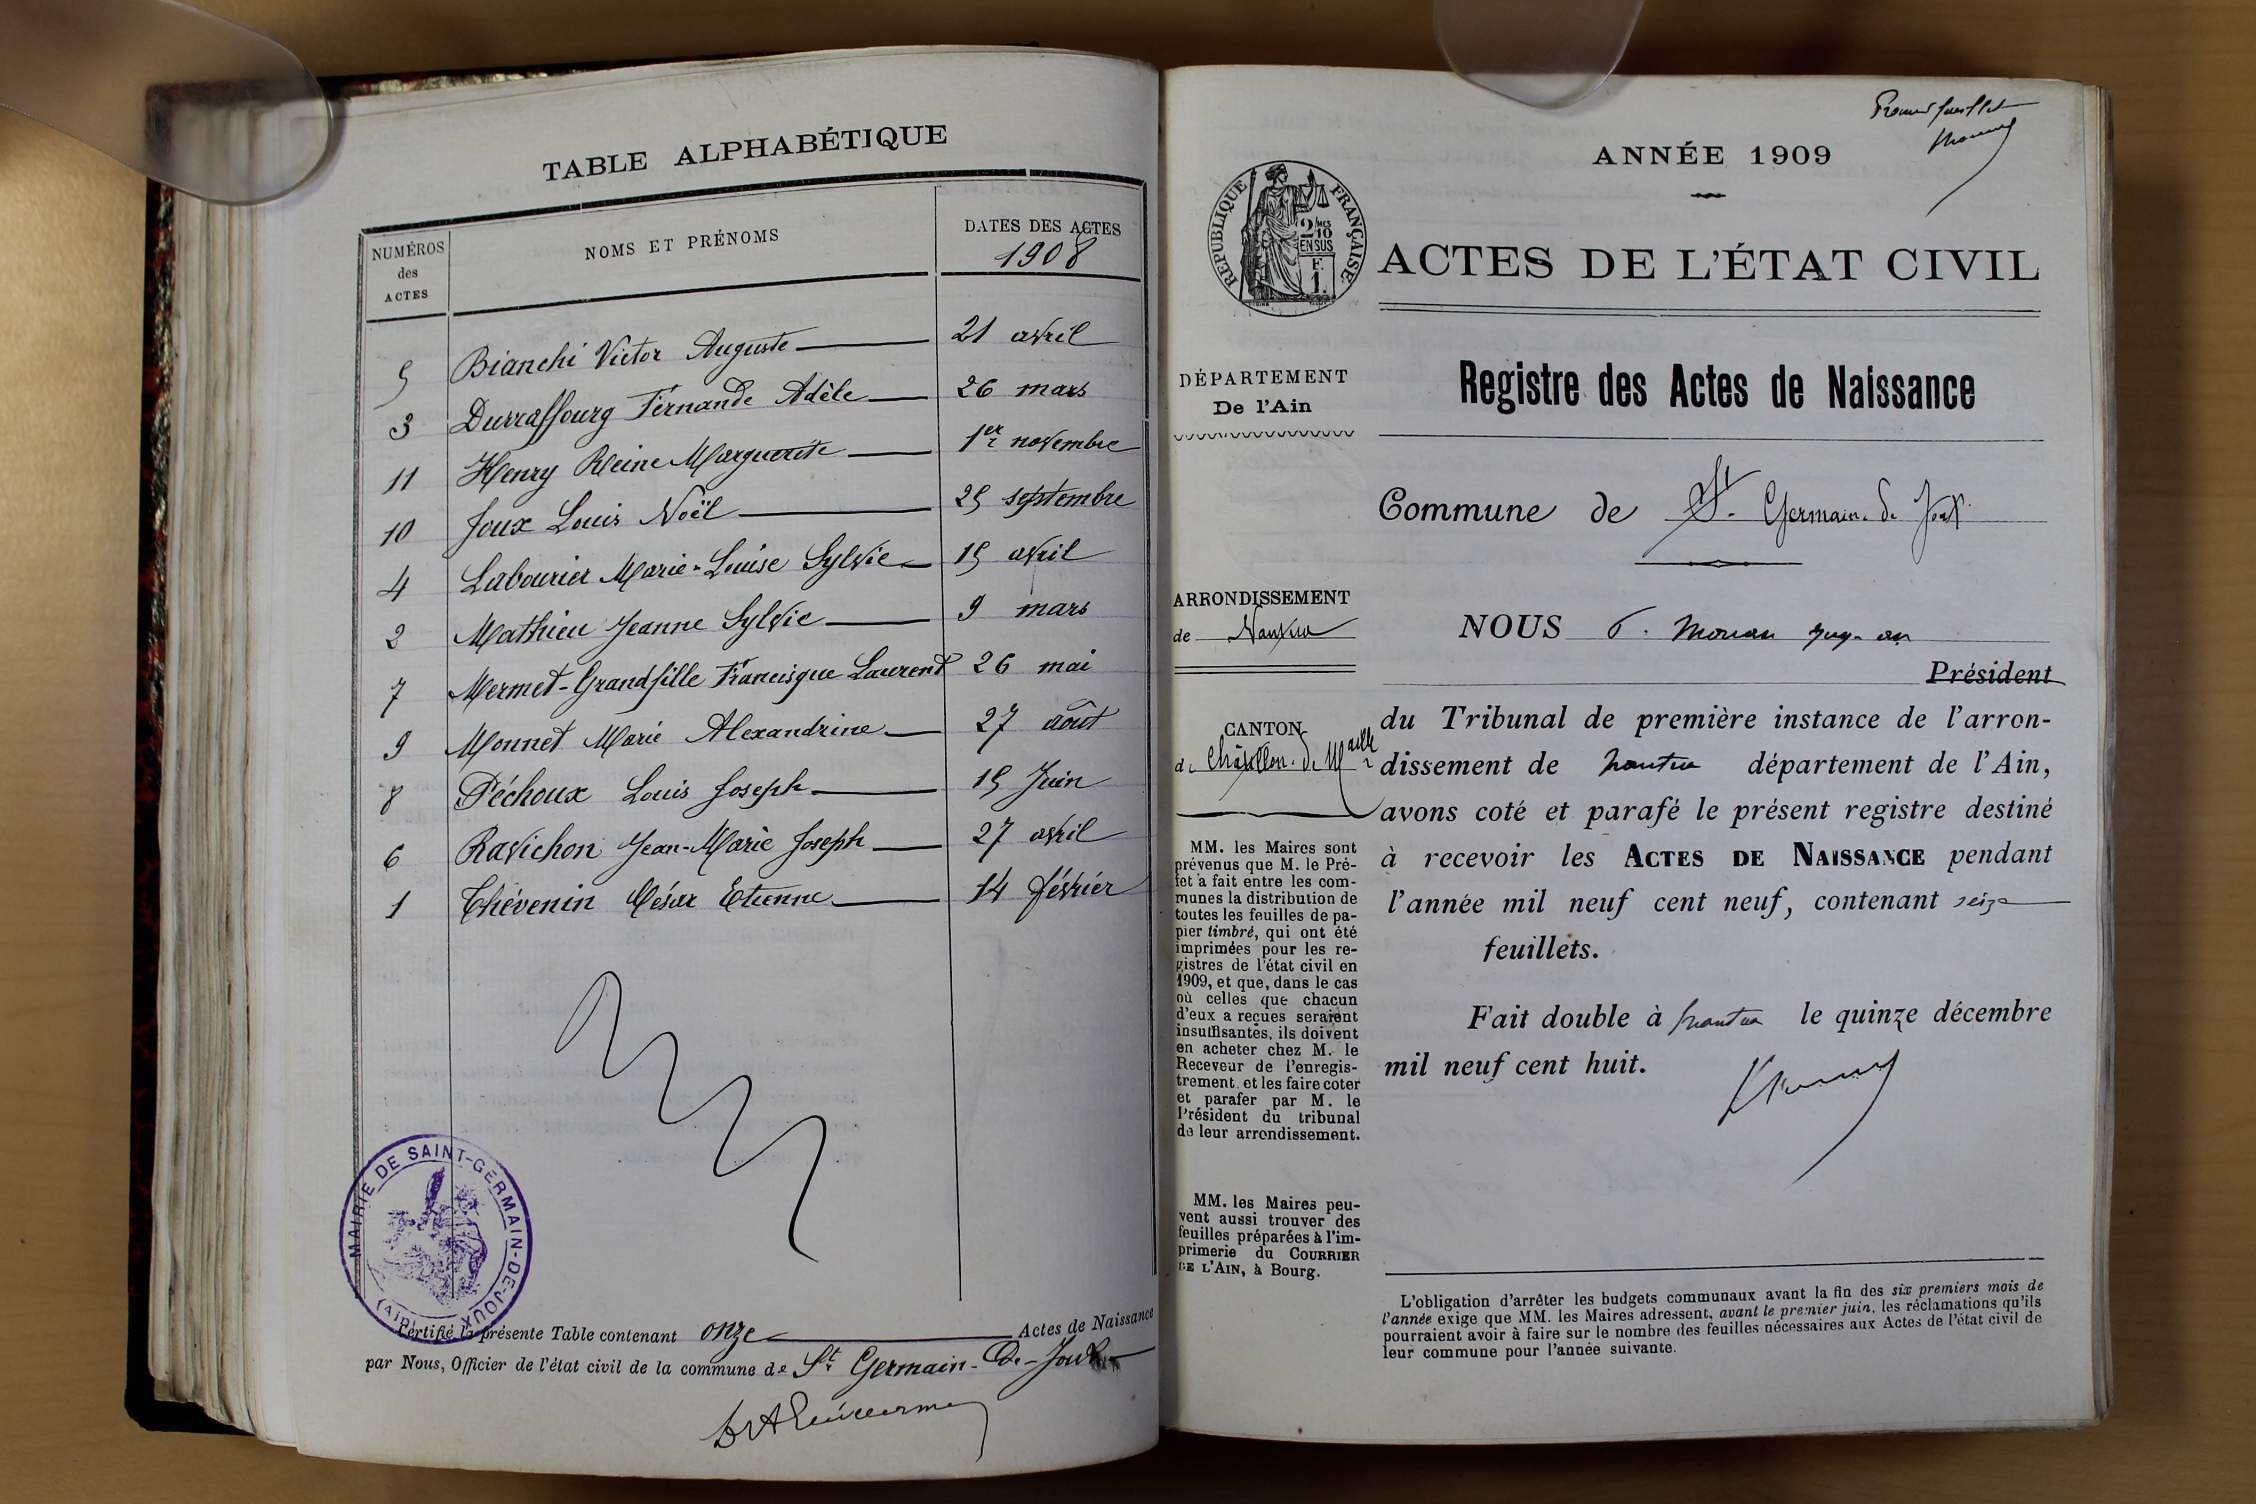 TABLE ALPHABÉTIQUE
NUMÉROS
des
ACTES
NOMS ET PRÉNOMS
DATES DES ACTES
1908
5 Bianchi Victor Auguste 21 avril
3 Durraffourg Fernande Adèle 26 mars
11 Henry Reine Marguerite 1er novembre
10 Joux Louis Noël 25 septembre
4 Labourier Marie-Louise Sylvie 15 avril
2 Mathieu Jeanne Sylvie 9 mars
7 Mermet-Grandfille Francisque Laurent 26 mai
9 Monnet Marie Alexandrine 27 août
8 Péchoux Louis Joseph 15 Juin
6 Ravichon Jean-Marie Joseph 27 avril
1 Thévenin César Etienne 14 février
MAIRIE DE SAINT-GERMAIN-DE-JOUX
(Ain)
Certifié la présente Table contenant onze Actes de Naissance
par Nous, Officier de l'état civil de la commune de St Germain-de-Joux
Premier feuillet
ANNÉE 1909
RÉPUBLIQUE FRANÇAISE
2/10
EN SUS
F.
1.
ACTES DE L'ÉTAT CIVIL
DÉPARTEMENT
De l'Ain
Registre des Actes de Naissance
Commune de St. Germain. de Joux
ARRONDISSEMENT
de Nantua
NOUS
Président
CANTON
de Châtillon. de Michaille
du Tribunal de première instance de l'arron-
dissement de Nantua département de l'Ain,
avons coté et parafé le présent registre destiné
à recevoir les ACTES DE NAISSANCE pendant
l'année mil neuf cent neuf, contenant seize
feuillets.
Fait double à Nantua le quinze décembre
mil neuf cent huit.
MM. les Maires sont
prévenus que M. le Pré-
fet a fait entre les com-
munes la distribution de
toutes les feuilles de pa-
pier timbré, qui ont été
imprimées pour les re-
gistres de l'état civil en
1909, et que, dans le cas
où celles que chacun
d'eux a reçues seraient
insuffisantes, ils doivent
en acheter chez M. le
Receveur de l'enregis-
trement, et les faire coter
et parafer par M. le
Président du tribunal
de leur arrondissement.
MM. les Maires peu-
vent aussi trouver des
feuilles préparées à l'im-
primerie du COURRIER
DE L'AIN, à Bourg.
L'obligation d'arrêter les budgets communaux avant la fin des six premiers mois de
l'année exige que MM. les Maires adressent, avant le premier juin, les réclamations qu'ils
pourraient avoir à faire sur le nombre des feuilles nécessaires aux Actes de l'état civil de
leur commune pour l'année suivante.